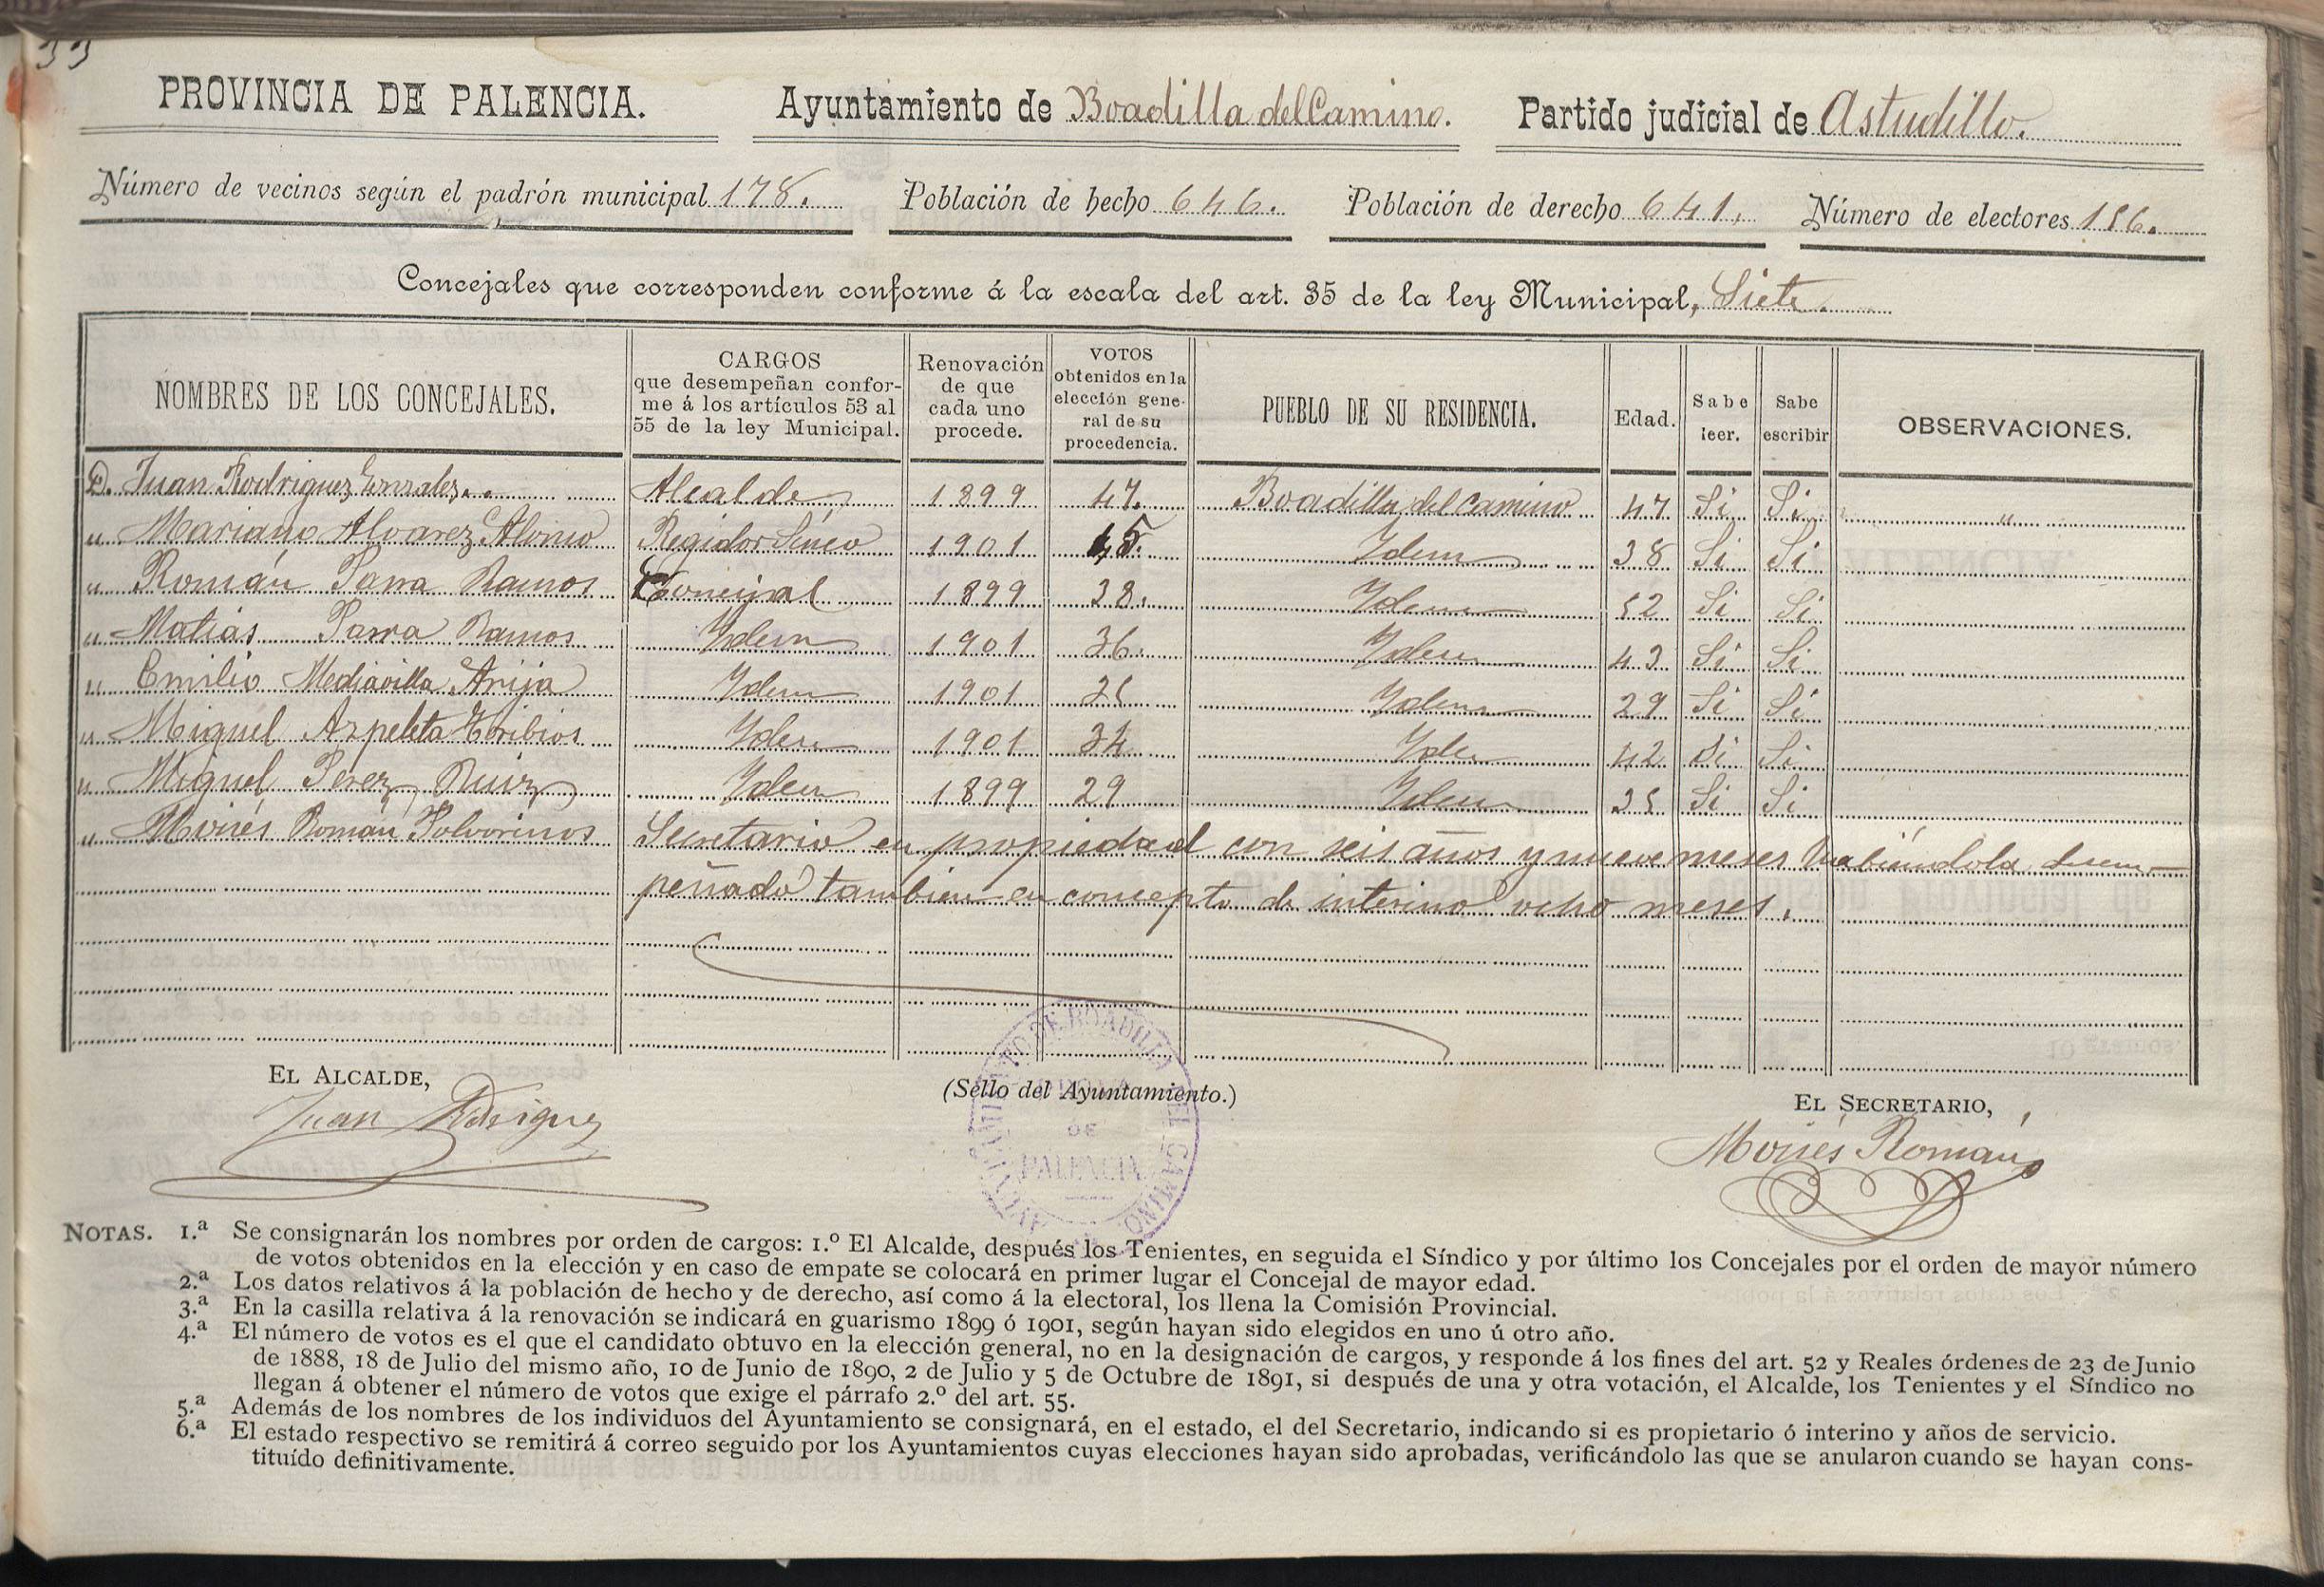 PROVINCIA DE PALENCIA. Ayuntamiento de Boadilla del Camino. Partido judicial de Astudillo.
Número de vecinos según el padrón municipal 178. Población de hecho 646. Población de derecho 641. Número de electores 156.
Concejales que corresponden conforme á la escala del art. 35 de la ley Municipal, Siete.
NOMBRES DE LOS CONCEJALES. CARGOS que desempeñan confor-me á los artículos 53 al 55 de la ley Municipal. Renovación de que cada uno procede. VOTOS obtenidos en la elección gene-ral de su procedencia. PUEBLO DE SU RESIDENCIA. Edad. Sabe leer. Sabe escribir OBSERVACIONES.
D. Juan Rodriguez Gonzalez Alcalde 1899 47. Boadilla del Camino 47 Si Si "
" Mariano Alvarez Alonso Regidor Sínco 1901 45. Idem 38 Si Si
" Román Parra Ramos Concejal 1899 38. Idem 52 Si Si
" Matias Parra Ramos Idem 1901 36. Idem 43 Si Si
" Emilio Mediavilla Arija Idem 1901 35 Idem 29 Si Si
" Miguel Azpeleta Toribios Idem 1901 34 Idem 42 Si Si
" Miguel Pérez Ruiz Idem 1899 29 Idem 35 Si Si
" Moisés Román Polvorinos Secretario en propiedad con seis años y nueve meses habiéndola desem-
peñado tambien en concepto de interino ocho meses.
EL ALCALDE,
Juan Rodriguez
(Sello del Ayuntamiento.)
AYUNTAMIENTO DE BOADILLA DEL CAMINO
DE
PALENCIA
EL SECRETARIO,
Moisés Román
NOTAS. 1.ª Se consignarán los nombres por orden de cargos: 1.º El Alcalde, después los Tenientes, en seguida el Síndico y por último los Concejales por el orden de mayor número
de votos obtenidos en la elección y en caso de empate se colocará en primer lugar el Concejal de mayor edad.
2.ª Los datos relativos á la población de hecho y de derecho, así como á la electoral, los llena la Comisión Provincial.
3.ª En la casilla relativa á la renovación se indicará en guarismo 1899 ó 1901, según hayan sido elegidos en uno ú otro año.
4.ª El número de votos es el que el candidato obtuvo en la elección general, no en la designación de cargos, y responde á los fines del art. 52 y Reales órdenes de 23 de Junio
de 1888, 18 de Julio del mismo año, 10 de Junio de 1890, 2 de Julio y 5 de Octubre de 1891, si después de una y otra votación, el Alcalde, los Tenientes y el Síndico no
llegan á obtener el número de votos que exige el párrafo 2.º del art. 55.
5.ª Además de los nombres de los individuos del Ayuntamiento se consignará, en el estado, el del Secretario, indicando si es propietario ó interino y años de servicio.
6.ª El estado respectivo se remitirá á correo seguido por los Ayuntamientos cuyas elecciones hayan sido aprobadas, verificándolo las que se anularon cuando se hayan cons-
tituído definitivamente.